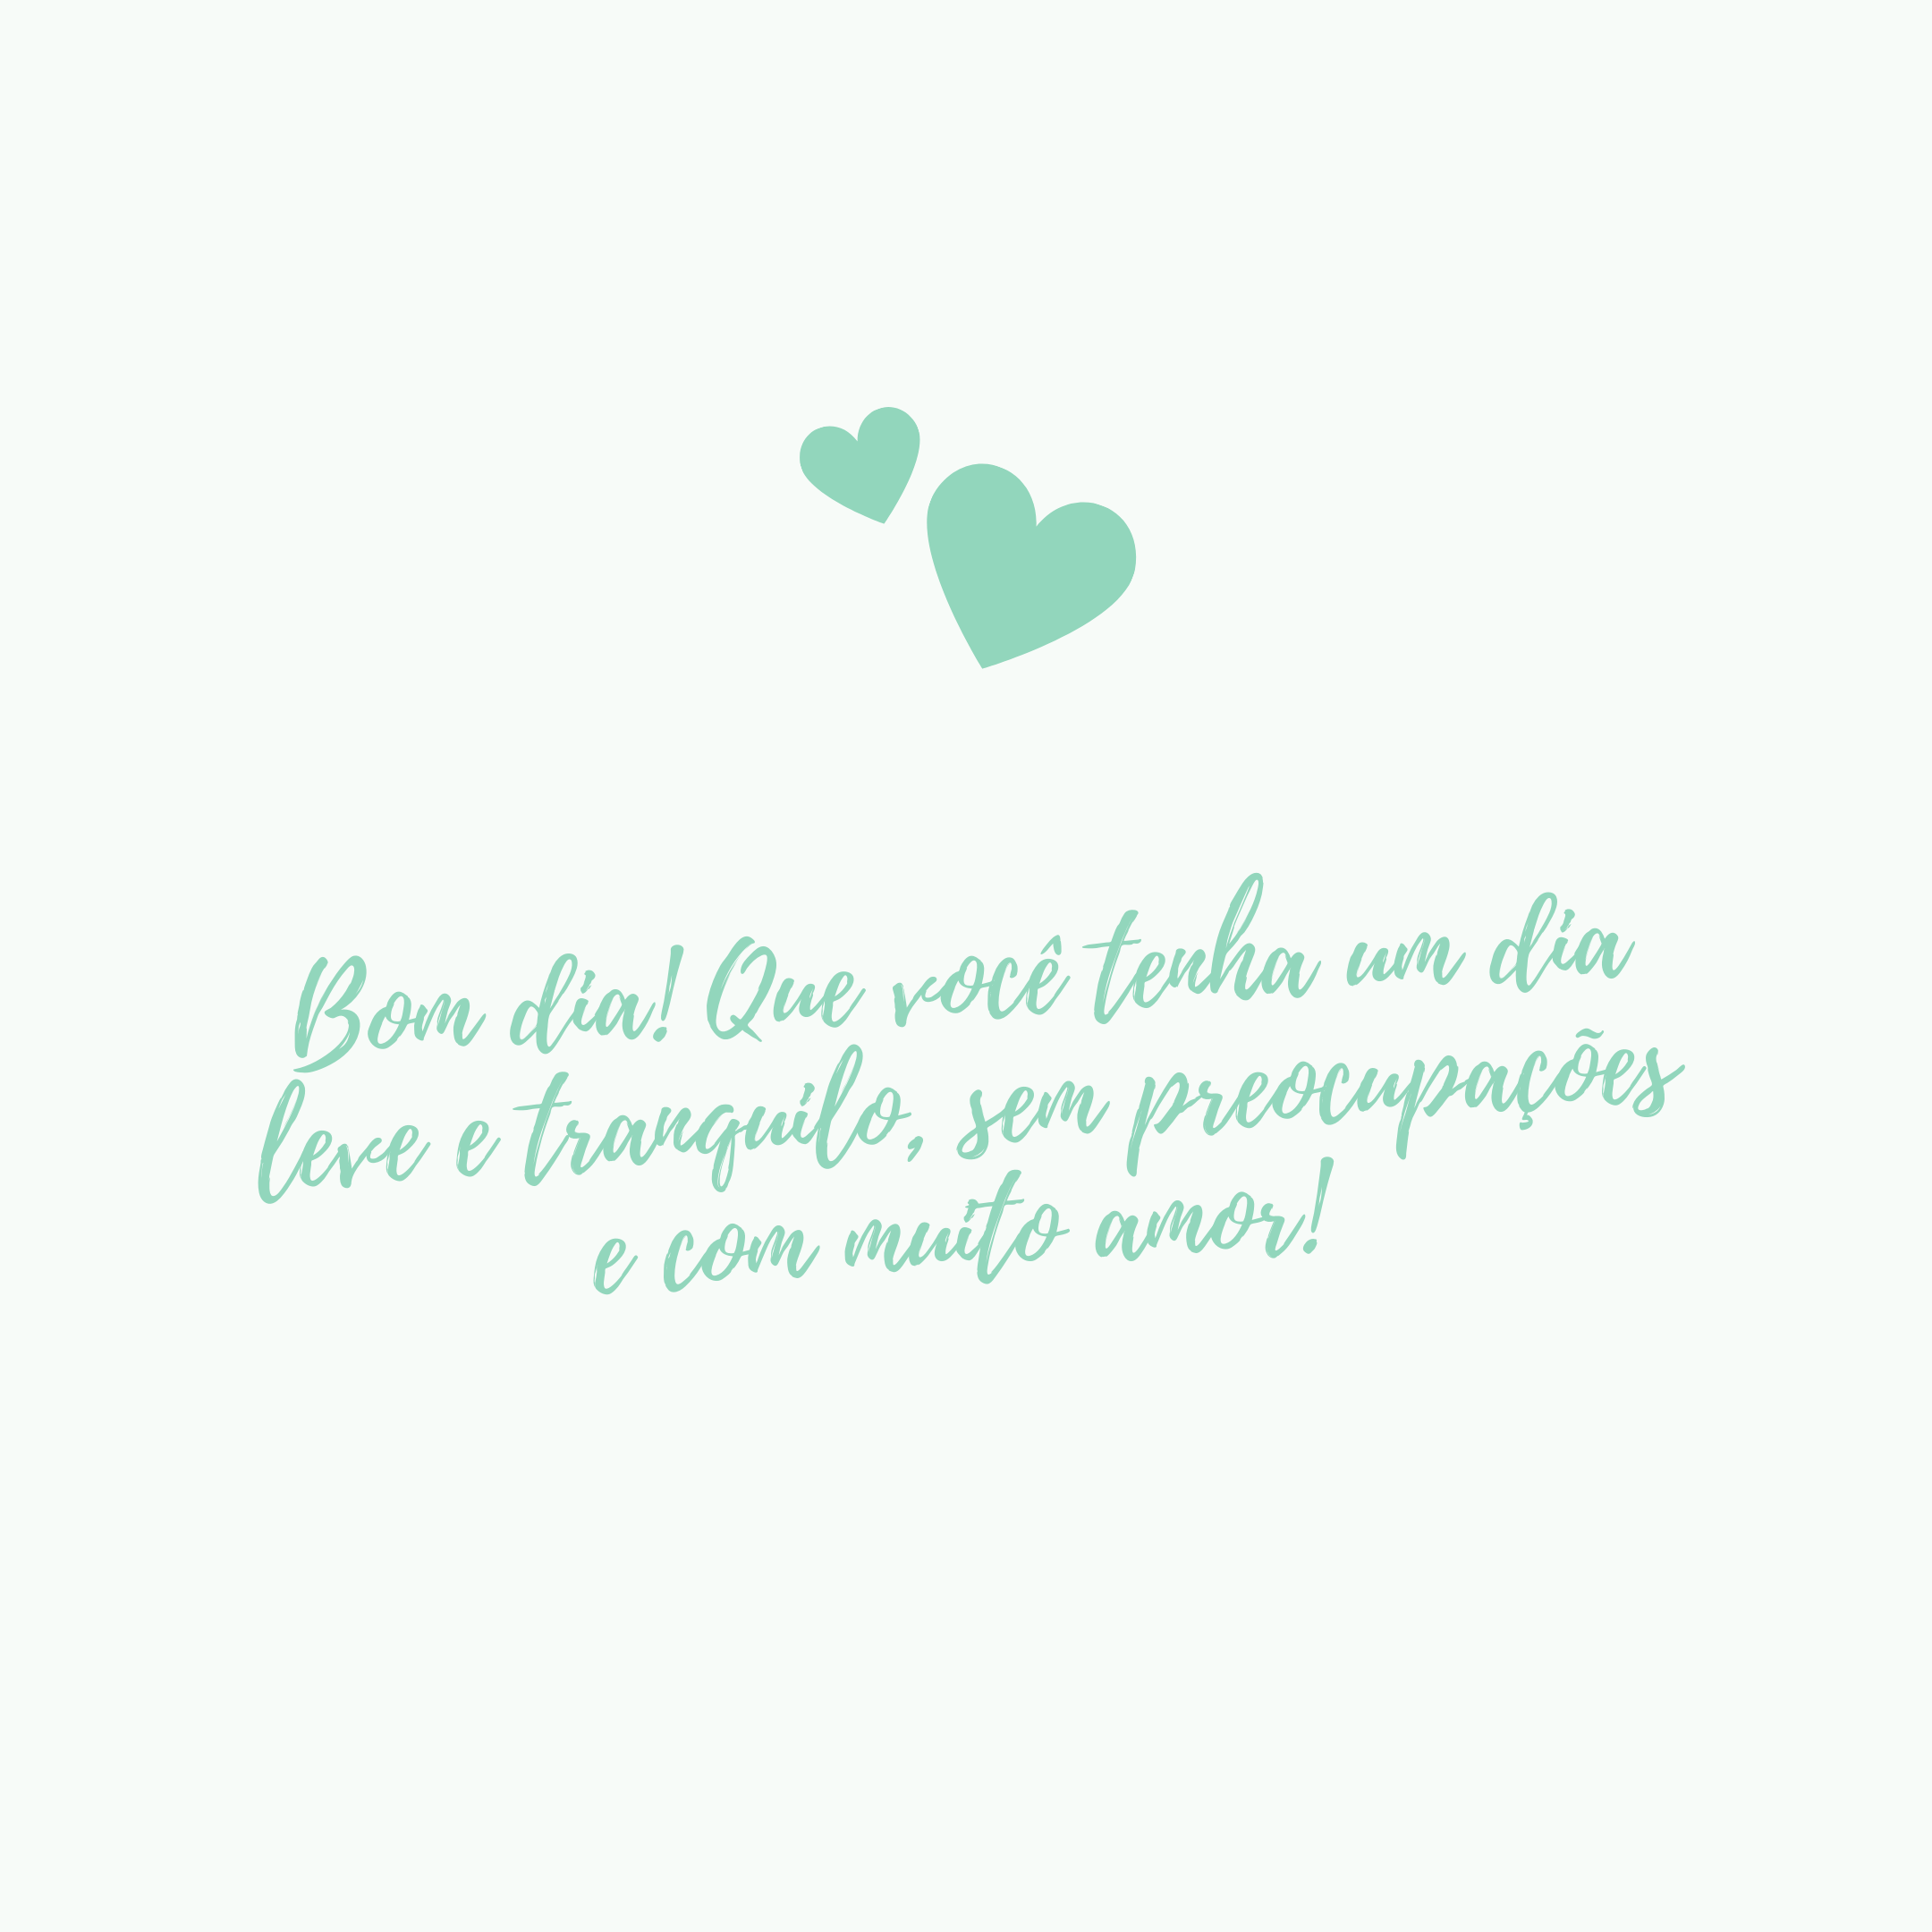 Bom dia! Que você tenha um dia
leve e tranquilo, sem preocupações
e com muito amor!